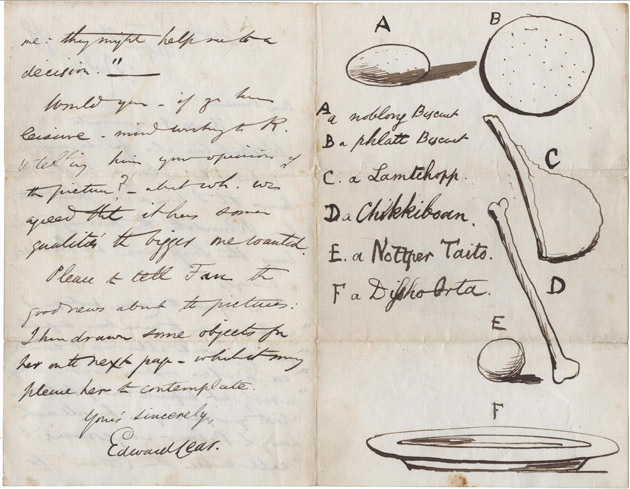 me: they might help me to a
decision."
Would you - if you have
leisure - mind writing to R.
& telling him your opinion of
the picture? - but wh. was
agreed that it has some
qualities the bigger one wanted.
Please to tell Fan the
good news about the pictures:
I have drawn some objects for
her on the next page - which it may
please her to contemplate.
Yours sincerely,
Edward Lear.
A
B
A a noblong Biscuit
B a phlatt Biscuit
C. a Lamtchopp.
C
D a Chikkiboan.
E. a Nottper Taito.
F a Dishho Orta.
D
E
F